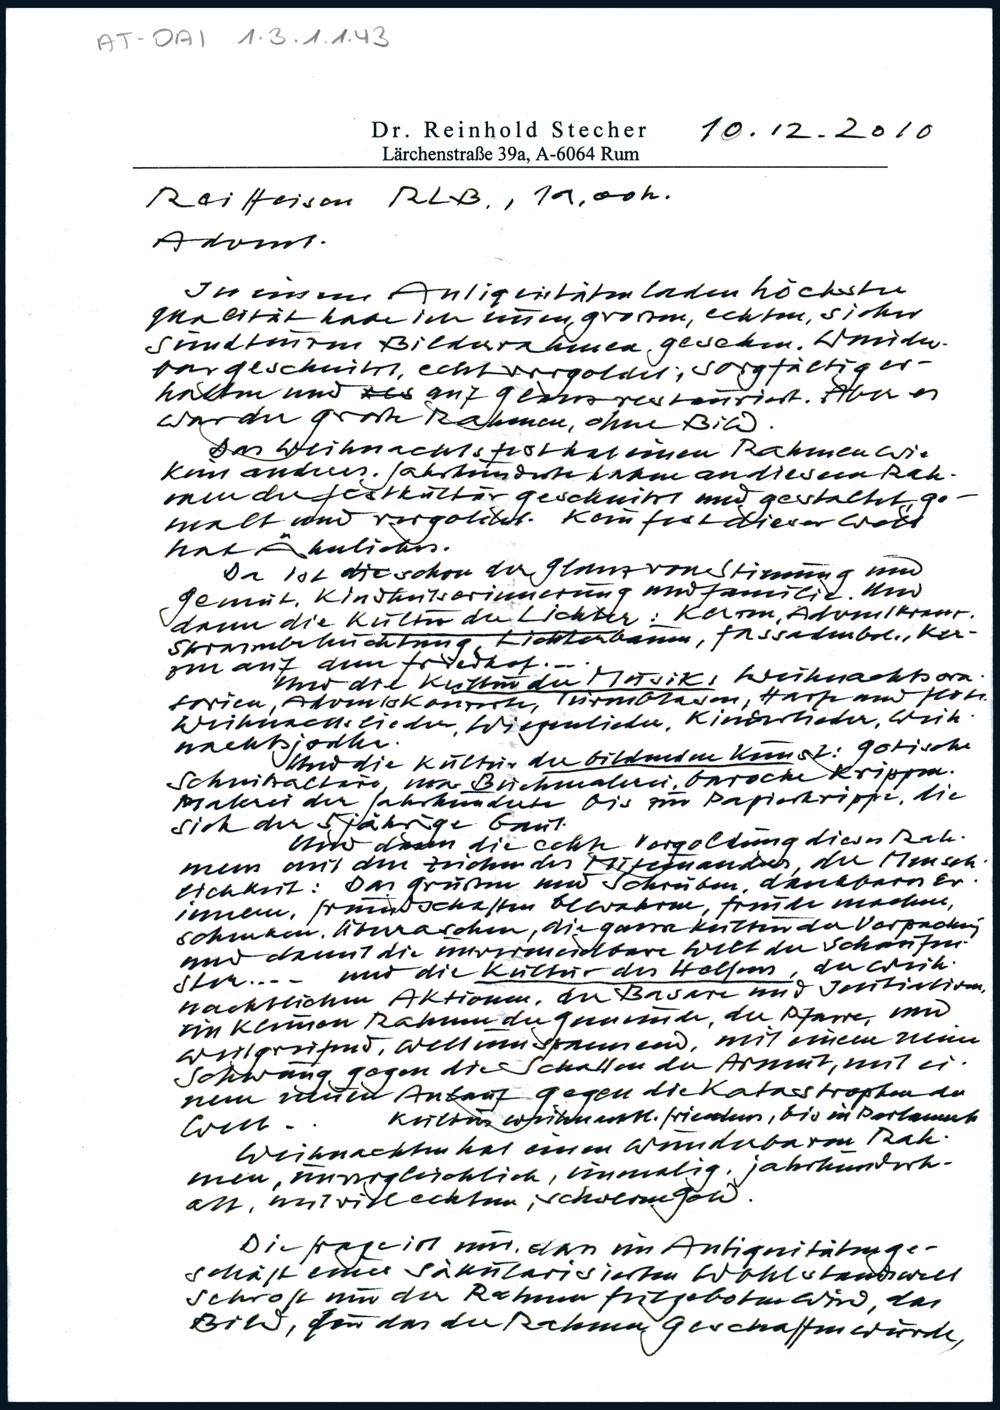 AT-DAI 1.3.1.1.43
Dr. Reinhold Stecher 10.12.2010
Lärchenstraße 39a, A-6064 Rum
Raiffeisen RLB.,
Advent.
In einem Antiquitätenladen höchster
Qualität habe ich einen grossen, echten, sicher
sündteuren Bilderrahmen gesehen. Wunder-
bar geschnitzt, echt vergoldet, sorgfältig er-
halten und auf Glanz restauriert. Aber es
war der grosse Rahmen, ohne Bild.
Das Weihnachtsfest hat einen Rahmen wie
kein anderes. Jahrhunderte haben an diesem Rah-
men der Festkultur geschnitzt und gestaltet, ge-
malt und vergoldet. Kein Fest dieser Welt
hat Ähnliches.
Da ist die schon der Glanz von Stimmung und
Gemüt, Kindheitserinnerung und Familie. Und
dann die Kultur der Lichter: Kerzen, Adventkranz,
Strassenbeleuchtung, Lichterbaum, Fassadenbel., Ker-
zen auf dem Friedhof...
Und die Kultur der Musik: Weihnachtsora-
torien, Adventskonzerte, Turmblasen, Harfe und Flöte
Weihnachtslieder, Wiegenlieder, Kinderlieder, Weih-
nachtsjodler.
Und die Kultur der bildenden Kunst: gotische
Schnitzaltäre, Buchmalerei, barocke Krippen.
Malerei der Jahrhunderte bis zur Papierkrippe, die
sich der 5jährige baut.
Und dann die echte Vergoldung dieses Rah-
mens mit den Zeichen des Miteinanders, der Mensch-
lichkeit: Das Grüssen und Schreiben, dankbares Er-
innern, Freundschaften bewahren, Freude machen,
schenken, überraschen, die ganze Kultur der Verpackung
und damit die unvermeidbare Welt der Schaufen-
ster.... und die Kultur des Helfens, der weih-
nachtlichen Aktionen, der Basare und Initiativen,
im kleinen Rahmen der Gemeinde, der Pfarre, und
weitgreifend, weltumspannend, mit einem neuen
Schwung gegen die Schatten der Armut, mit ei-
nem neuen Anlauf gegen die Katastrophen der
Welt.. Kultur weihnachtl. Friedens, bis in Parlament
Weihnachten hat einen wunderbaren Rah-
men, unvergleichlich, einmalig, jahrhunderte-
alt, mit viel echtem, schwerem Gold.
Die Frage ist nur, dass im Antiquitätenge-
schäft einer säkularisierten Wohlstandswelt
schroff nur der Rahmen feilgeboten wird, das
Bild, für das der Rahmen geschaffen wurde,